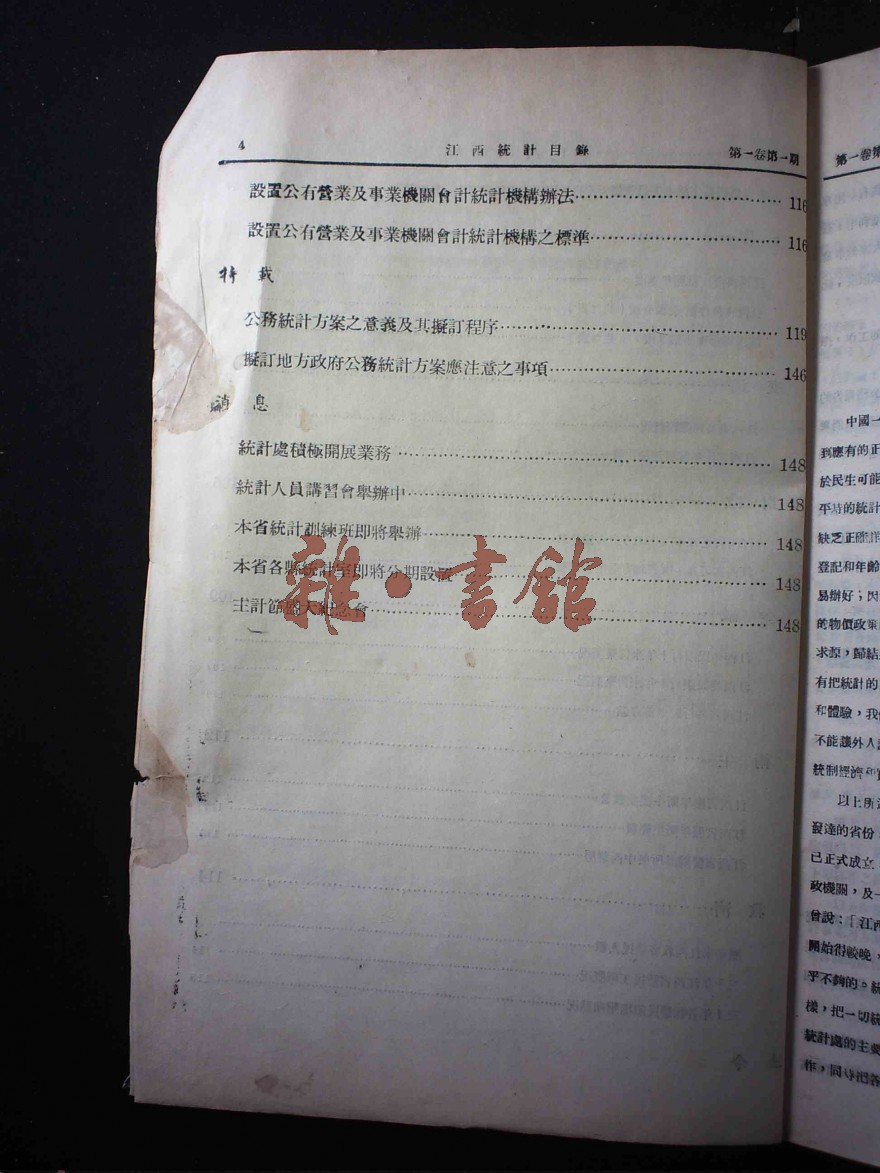 4 江西統計目錄 第一卷第一期
設置公有營業及事業機關會計統計機構辦法 116
設置公有營業及事業機關會計統計機構之標準 116
特載
公務統計方案之意義及其擬訂程序 119
擬訂地方政府公務統計方案應注意之事項 146
消息
統計處積極開展業務 148
統計人員講習會舉辦中 148
本省統計訓練班即將舉辦 148
本省各縣統計室即將分期設置 148
主計節盛大紀念會 148
雜·書館
第一卷第
中國一
到應有的正
於民生可能
平時的統計
缺乏正確詳
登記和年齡
易辦好；因
的物價政策
求源，歸結
有把統計的
和體驗，我
不能讓外人
統制經濟和
以上所
發達的省份
已正式成立
政機關，及一
曾說：「江西
開始得較晚，
乎不夠的。統
樣，把一切統
統計處的主要
作，同時把各